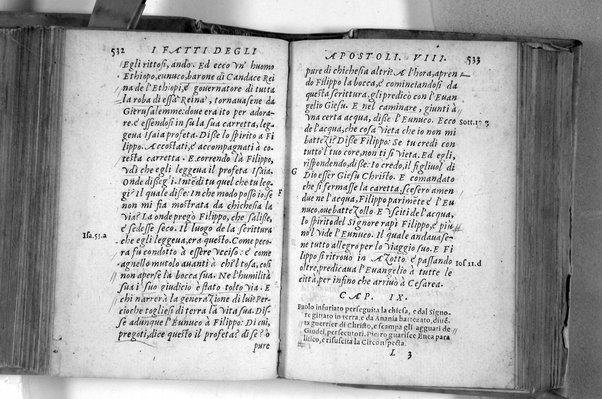 532
I FATTI DEGLI
Egli rittosi, ando. Ed ecco un' huomo
Ethiopo, eunuco, barone di Candace Rei
na de l'Ethiopi, & governatore di tutta
la roba di essa Reina, tornavasene da
Gierusalemme. dove era ito per adora-
re. & essendosi in su la sua carretta, leg-
geva Isaia profeta. Disse lo spirito a Fi
lippo. Accostati, & accompagnati à co-
testa carretta. E correndo la Filippo,
udi che egli leggeva il profeta Isaia.
Onde disse gli. Intendi tu quel che tu leg-
gi? Il quale disse. In che modo posso io se
non mi fia mostrata da chichesia la
via? La onde pregò Filippo, che salisse,
& sedesse seco. Il luogo de la scrittura
che egli leggeva, era questo. Come peco-
ra fu condotto à essere ucciso. & come
agnello mutolo avanti à chi'l tosa, cosi
non aperse la bocca sua. Ne l'humilità
sua il suo giudicio è stato tolto via. E
chi narrerà la generazione di lui? Per-
cioche togliesi di terra la vita sua. Dis-
se adunque l'Eunuco à Filippo: Di cui,
pregoti, dice questo il profeta? di se? ò
pure
Isa. 53. a
F
APOSTOLI. VIII.
533
pure di chichesia altri? A l'hora, apren
do Filippo la bocca, & cominciandosi da
questa scrittura, gli predicò con l'Euan
gelio Giesu. E nel caminare, giunti à
una certa acqua, disse l'Eunuco. Ecco
de l'acqua, che cosa vieta che io non mi
battezi? Disse Filippo: Se tu credi con
tutto'l tuo core, non ti si vieta. Ed egli,
rispondendo, disse: Io credo, il figliuol di
Dio esser Giesu Christo. E comandato
che si fermasse la caretta, scesero amen
due ne l'acqua, Filippo parimẽte & l'Eu
nuco, & battezollo. E usciti de l'acqua,
lo spirito del Signore rapì Filippo, & piu
no'l vide l'Eunuco. Il quale andavase-
ne tutto allegro per lo viaggio suo. E Fi
lippo si ritrovò in Azotto & passando
oltre, predicava l'Evangelio à tutte le
città, per infino che arrivò à Cesarea.
CAP. IX.
Paolo infuriato perseguita la chiesa, e dal Signo-
re gittato in terra, e da Anania battezato, dive-
ta guerrier di Christo, e scampa gli agguati de
Giudei, persecutori, Pietro guarisce Enea para
litico, e risuscita la Circonspecta.
L 3
G
Ios 11. d